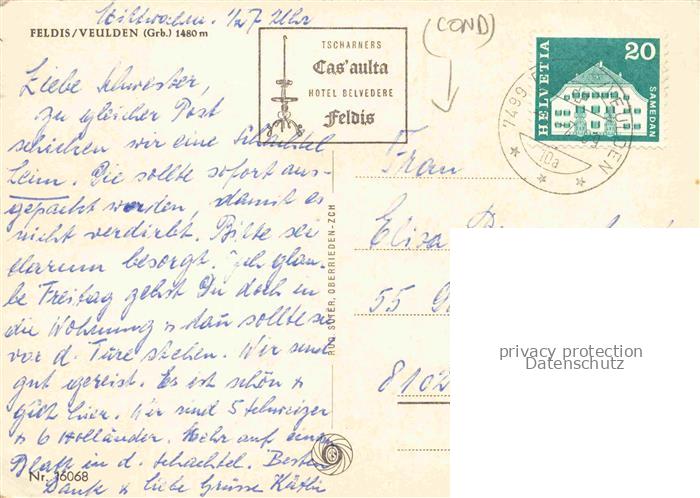 Mittwoch. 1/2 7 Uhr
FELDIS/VEULDEN (Grb.) 1480 m
Liebe Schwester,
zu gleicher Post
schicken wir eine Schachtel
heim. Die sollte sofort aus-
gepackt werden, damit es
nicht verdirbt. Bitte sei
darum besorgt. Ich glau-
be Freitag gehst Du doch in
die Wohnung & dan sollte sie
vor d. Türe stehen. Wir sind
gut gereist. Es ist schön &
gut hier. Wir sind 5 Schweizer
& 6 Holländer. Mehr auf einem
Blatt in d. Schachtel. Besten
Dank & liebe Grüsse Käthi
Nr. 16068
RUD. SUTER, OBERRIEDEN-ZCH
TSCHARNERS
Cas'aulta
HOTEL BELVEDERE
Feldis
(COND)
HELVETIA
20
SAMEDAN
7499
VEULDEN
10a
Frau
Elisa
55
8102
privacy protection
Datenschutz